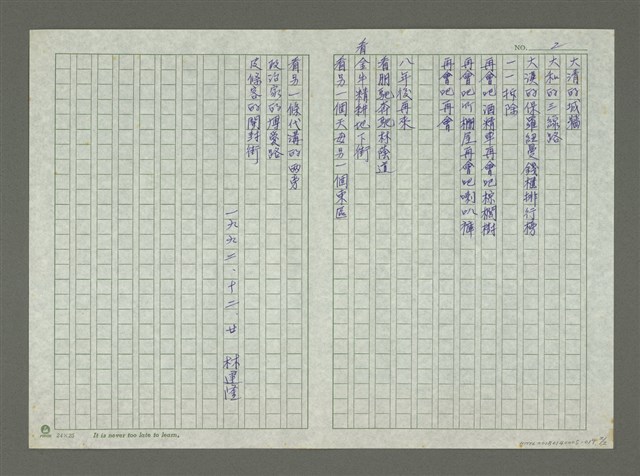 NO. 2
大清的城牆
大和的三線路
大漢的保羅紐曼錢櫃排行榜
一一拆除
再會吧酒精車再會吧棕櫚樹
再會吧竹棚屋再會吧喇叭褲
再會吧再會
八年後再來
看朋馳奔馳林蔭道
看金牛精耕地下街
看另一個天母另一個東區
看另一條代溝的西旁
政治家的博愛路
皮條客的開封街
一九九二.十二.廿
林建隆
24×25
It is never too late to learn.